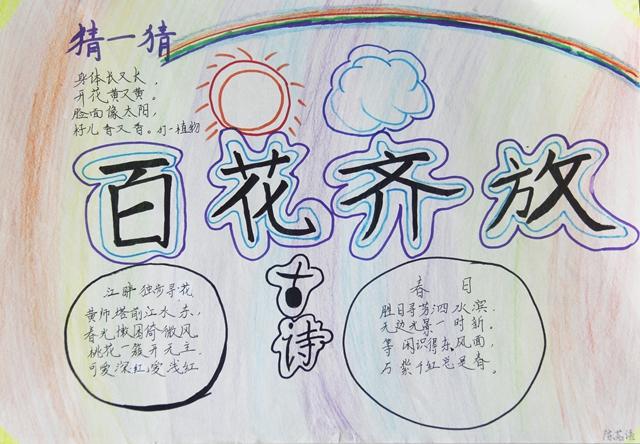 猜一猜
身体长又长，
开花黄又黄。
脸面像太阳，
籽儿香又香。打一植物
百花齐放
古诗
江畔独步寻花
黄师塔前江水东，
春光懒困倚微风
桃花一簇开无主
可爱深红爱浅红
春日
胜日寻芳泗水滨，
无边光景一时新。
等闲识得东风面，
万紫千红总是春。